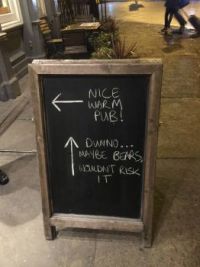 NICE
WARM
PUB!
DUNNO...
MAYBE BEARS,
WOULDN'T RISK
IT